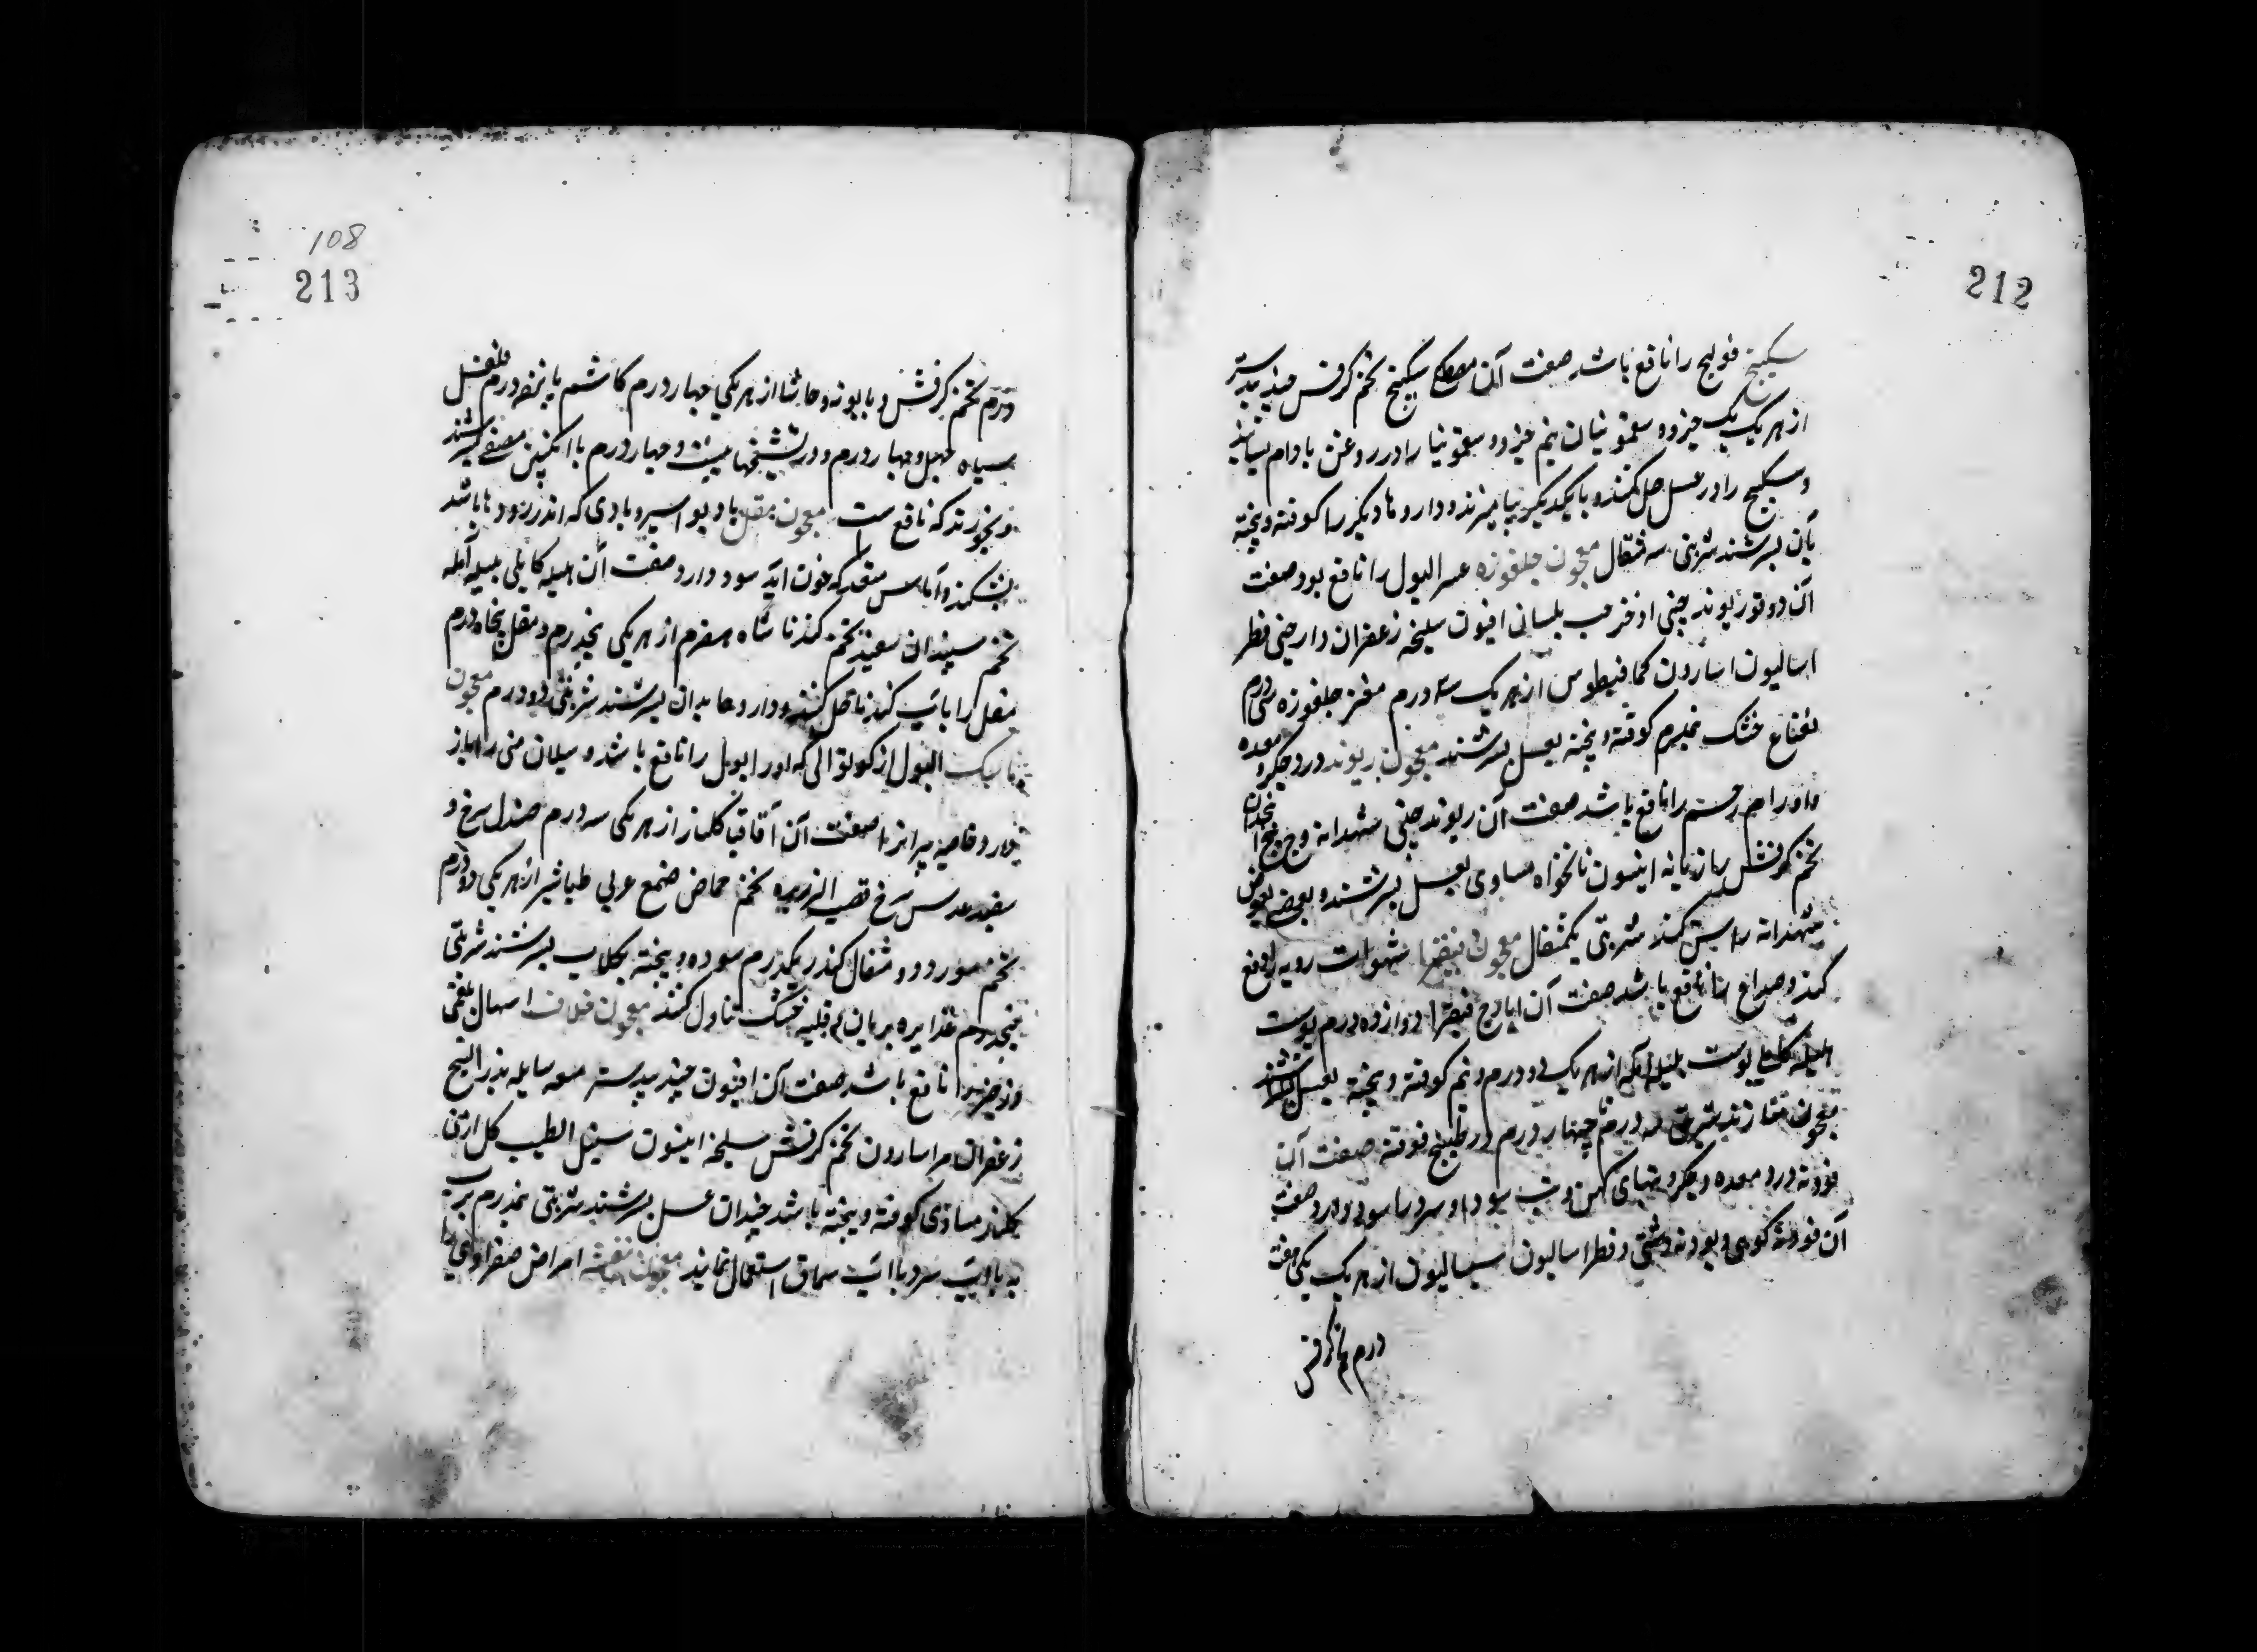 212
سکبینج قولنج را نافع باشد صفت آن سکبینج تخم کرفس جندبیدستر
از هر یک یک جزو سقمونیا نیم جزو و سقمونیا را در روغن بادام بسایند
و سکبینج را در عسل حل کنند و با یکدیگر بیامیزند و داروها دیگر را کوفته و بیخته
بآن بسرشند شربتی سه مثقال معجون جلغوزه عسر البول را نافع بود صفت
آن دوقو ریوند چینی اذخر حب بلسان افیون سلیخه زعفران دارچینی فطر
اسالیون اسارون کمافیطوس از هر یک سه درم مغز جلغوزه سی درم
نعناع خشک کوفته و بیخته بعسل بسرشند معجون ریوند درد جگر و معده
و اورام رحم را نافع باشد صفت آن ریوند چینی شهدانه وج
تخم کرفس رازیانه انیسون نانخواه مساوی بعسل بسرشند و بعضی بعوض
شهدانه کنند شربتی یکمثقال معجون فیقرا شهوات ردیه را دفع
کند و صداع را نافع باشد صفت آن ایارج فیقرا دوازده درم پوست
هلیله کابلی پوست بلیله آمله از هر یک دو درم و نیم کوفته و بیخته بعسل بسرشند
معجون شربتی سه درم تا چهار درم در طبیخ فوتنه صفت آن
فودنه درد معده و جگر و تبهای کهن و تب سودا و سرد را سود دارد صفت
آن فودنه کوهی و پودنه دشتی و فطراسالیون سیسالیون از هر یک هفت
درم تخم کرفس
108
213
درم تخم کرفس و بابونه و حاشا از هر یکی چهار درم کاشم پانزده درم فلفل
سیاه چهل و چهار درم و در نسخها بیست و چهار درم با انگبین مصفی بسرشند
و بخورند که نافع است معجون مقل باد بواسیر و بادی که اندر روده‌ها باشد
بشکند و آماس مقعد که خون آید سود دارد صفت آن هلیله کابلی بلیله آمله
تخم سپندان سفید تخم گندنا شاه سفرم از هر یکی پنجدرم و مقل پنجاه درم
مقل را بآب گندنا حل کنند و داروها بدان بسرشند شربتی دو درم معجون
البول از را نافع باشد و سیلان منی را باز
دارد صفت آن آقاقیا گلنار از هر یکی سه درم صندل سرخ و
سفید عدس سرخ تخم حماض صمغ عربی طباشیر از هر یکی دو درم
تخم مورد دو مثقال کندر یکدرم سوده و بیخته بجلاب بسرشند شربتی
پنجدرم غذا بریان قلیه خشک تناول کنند معجون فلافیا اسهال بلغمی
را نافع باشد صفت آن افیون جندبیدستر میعه سایله بذر البنج
زعفران مر اسارون تخم کرفس سلیخه انیسون سنبل الطیب گل ارمنی
گلنار مساوی کوفته و بیخته باشد چندان عسل بسرشند شربتی نیمدرم برب
به یا بآب سرد یا آب سماق استعمال نمایند معجون بنفشه امراض صفراوی را